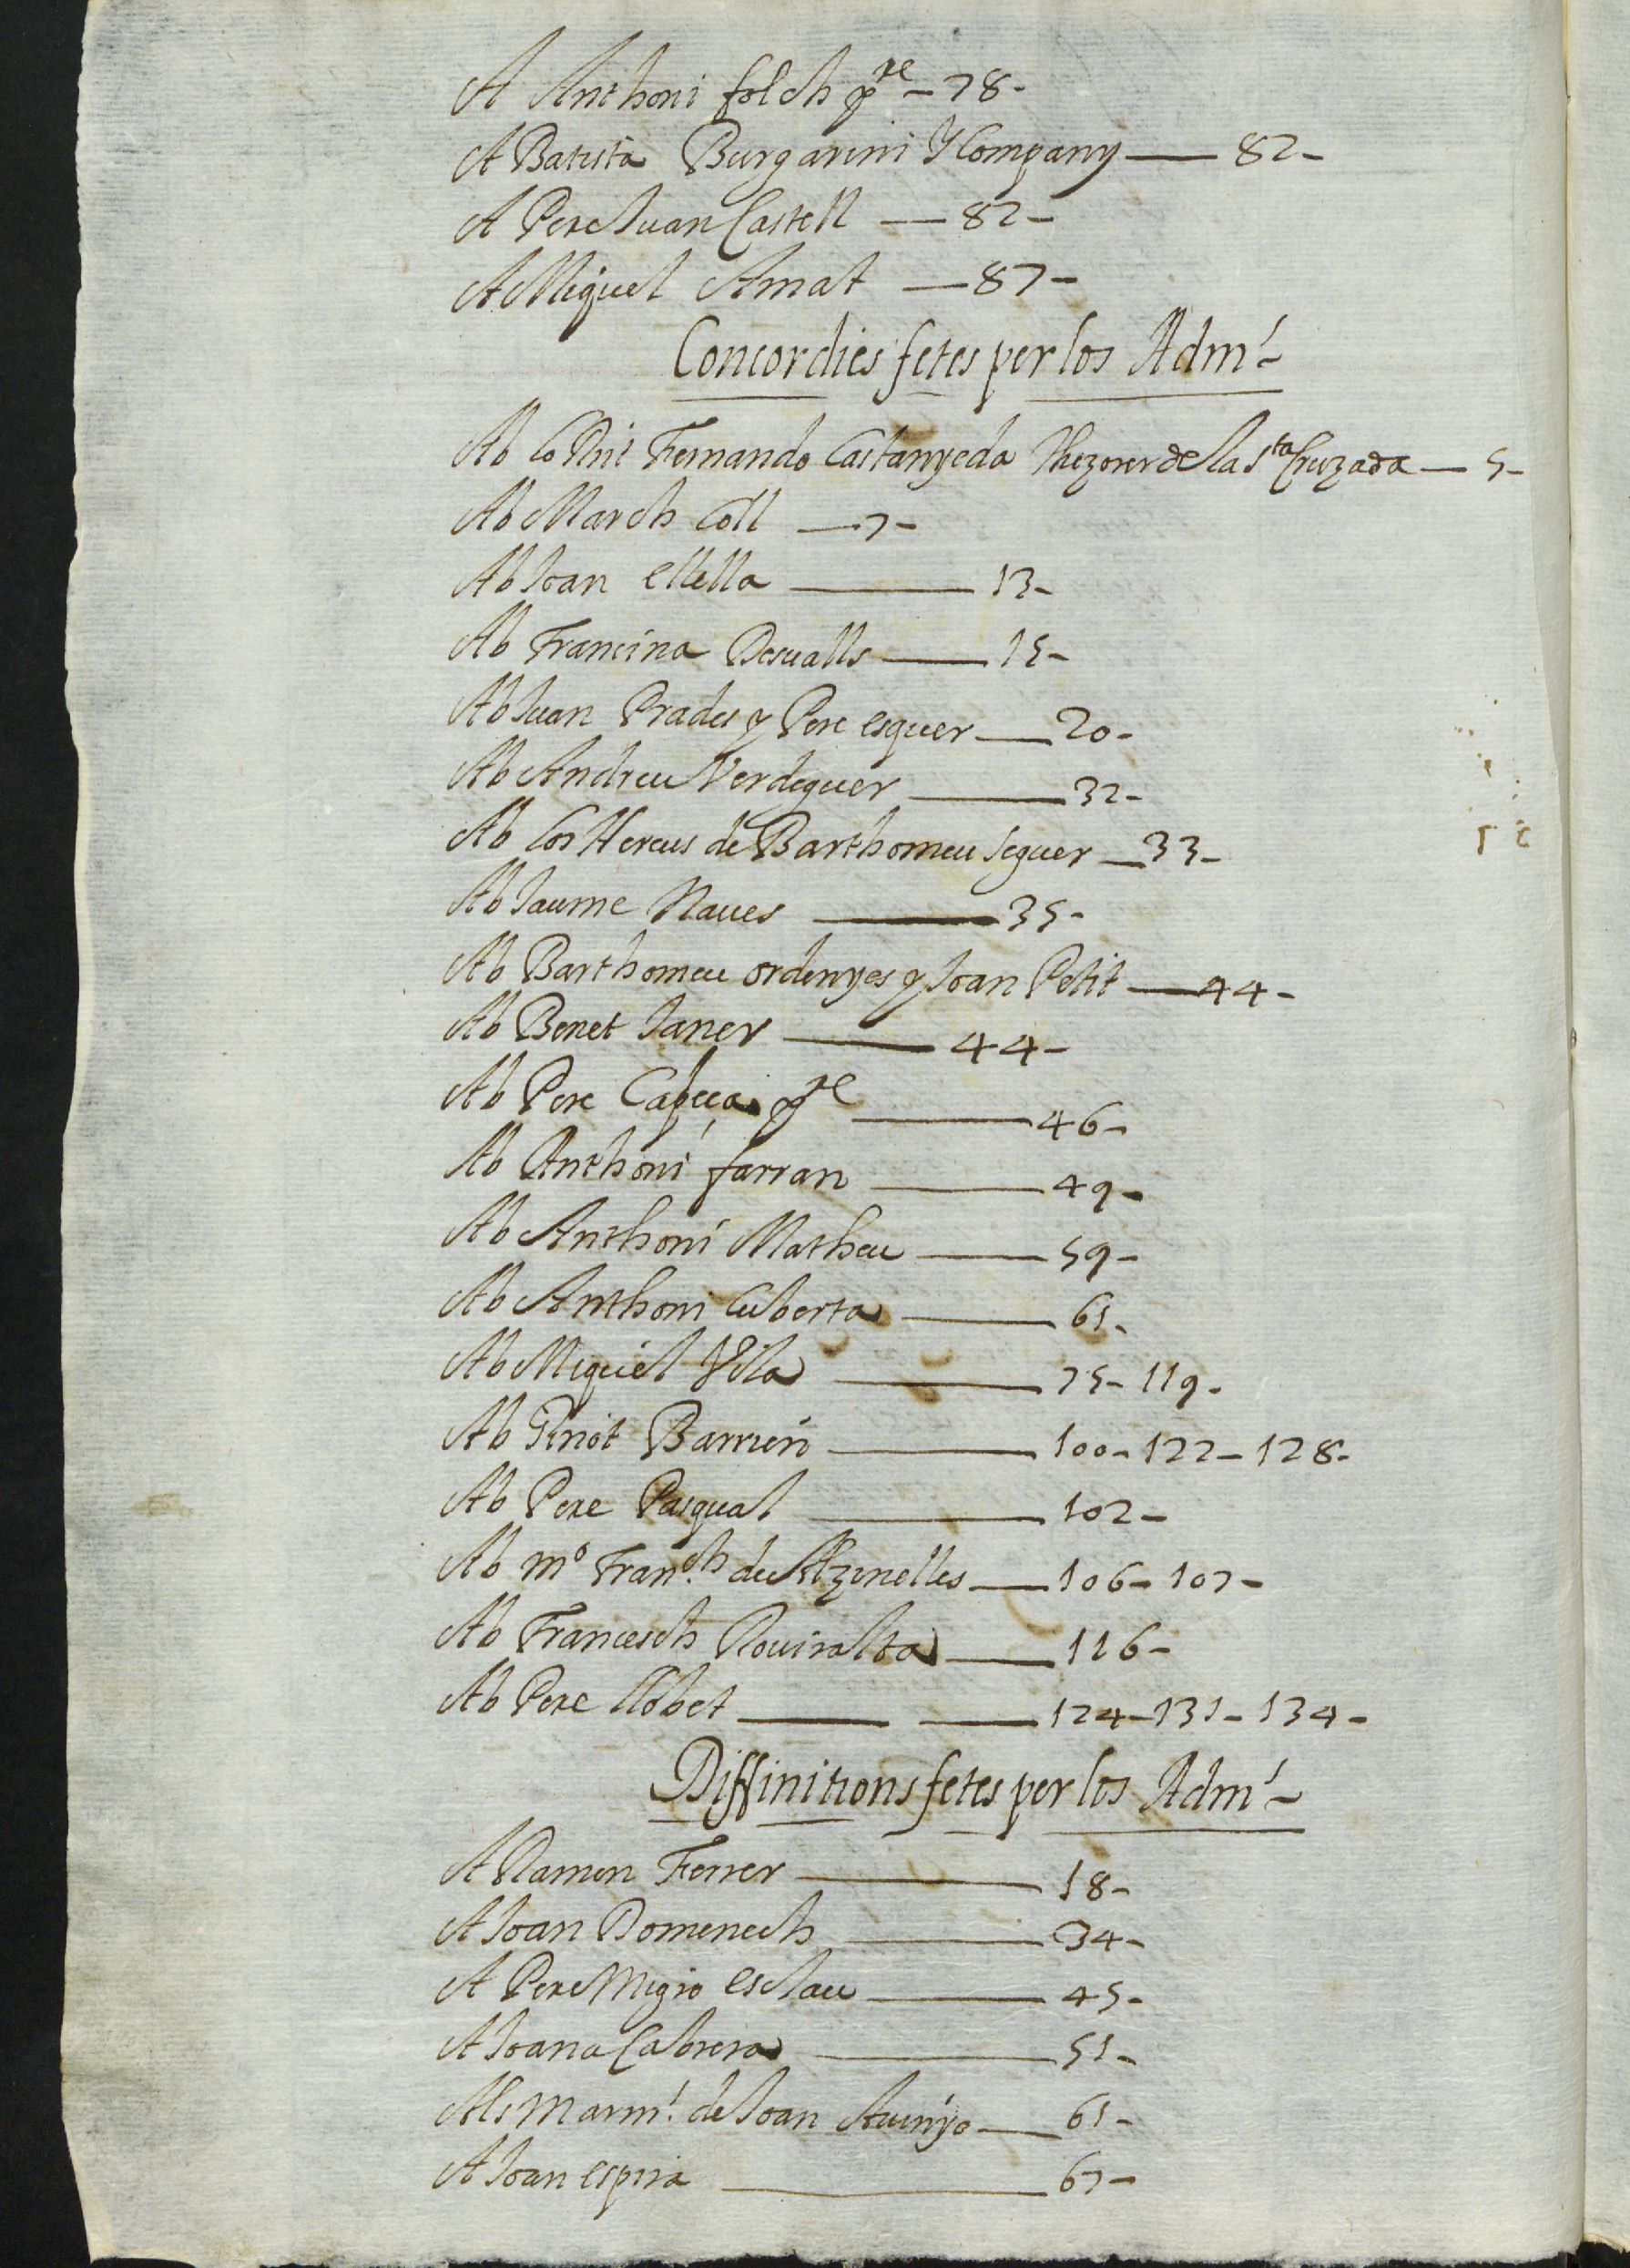 A Anthoni folch p^re - 78 -
A Batista Burgarini y Company — 82 -
A Pere Juan Castell — 82 -
A Miquel Amat — 87 -
Concordies fetes per los Adm^s -
Ab lo Fernando Castanyeda Thezorer de la S^ta Cruzada — 5 -
Ab March Coll — 7 -
Ab Joan Ellella — 13 -
Ab Francina Desualls — 15 -
Ab Juan Prades y Pere esquer — 20 -
Ab Andreu Verdeguer — 32 -
Ab los Hereus de Barthomeu seguer — 33 -
Ab Jaume Naues — 35 -
Ab Barthomeu ordenyes y Joan Petit — 44 -
Ab Benet Janer — 44 -
Ab Pere p^re — 46 -
Ab Anthoni farran — 49 -
Ab Anthoni Matheu — 59 -
Ab Anthoni Cuberta — 61 -
Ab Miquel Vila — 75 - 119 -
Ab Pinot — 100 - 122 - 128 -
Ab Pere Pasqual — 102 -
Ab m^o Fran^ch de Alzinelles — 106 - 107 -
Ab Francesch Rouiralta — 116 -
Ab Pere llobet — 124 - 131 - 134 -
Diffinitions fetes per los Adm^s -
A Ramon Ferrer — 18 -
A Joan Domenech — 34 -
A Pere Migro esclau — 45 -
A Joana Cabrera — 51 -
Als Marm^s de Joan Auinyo — 61 -
A Joan espira — 67 -